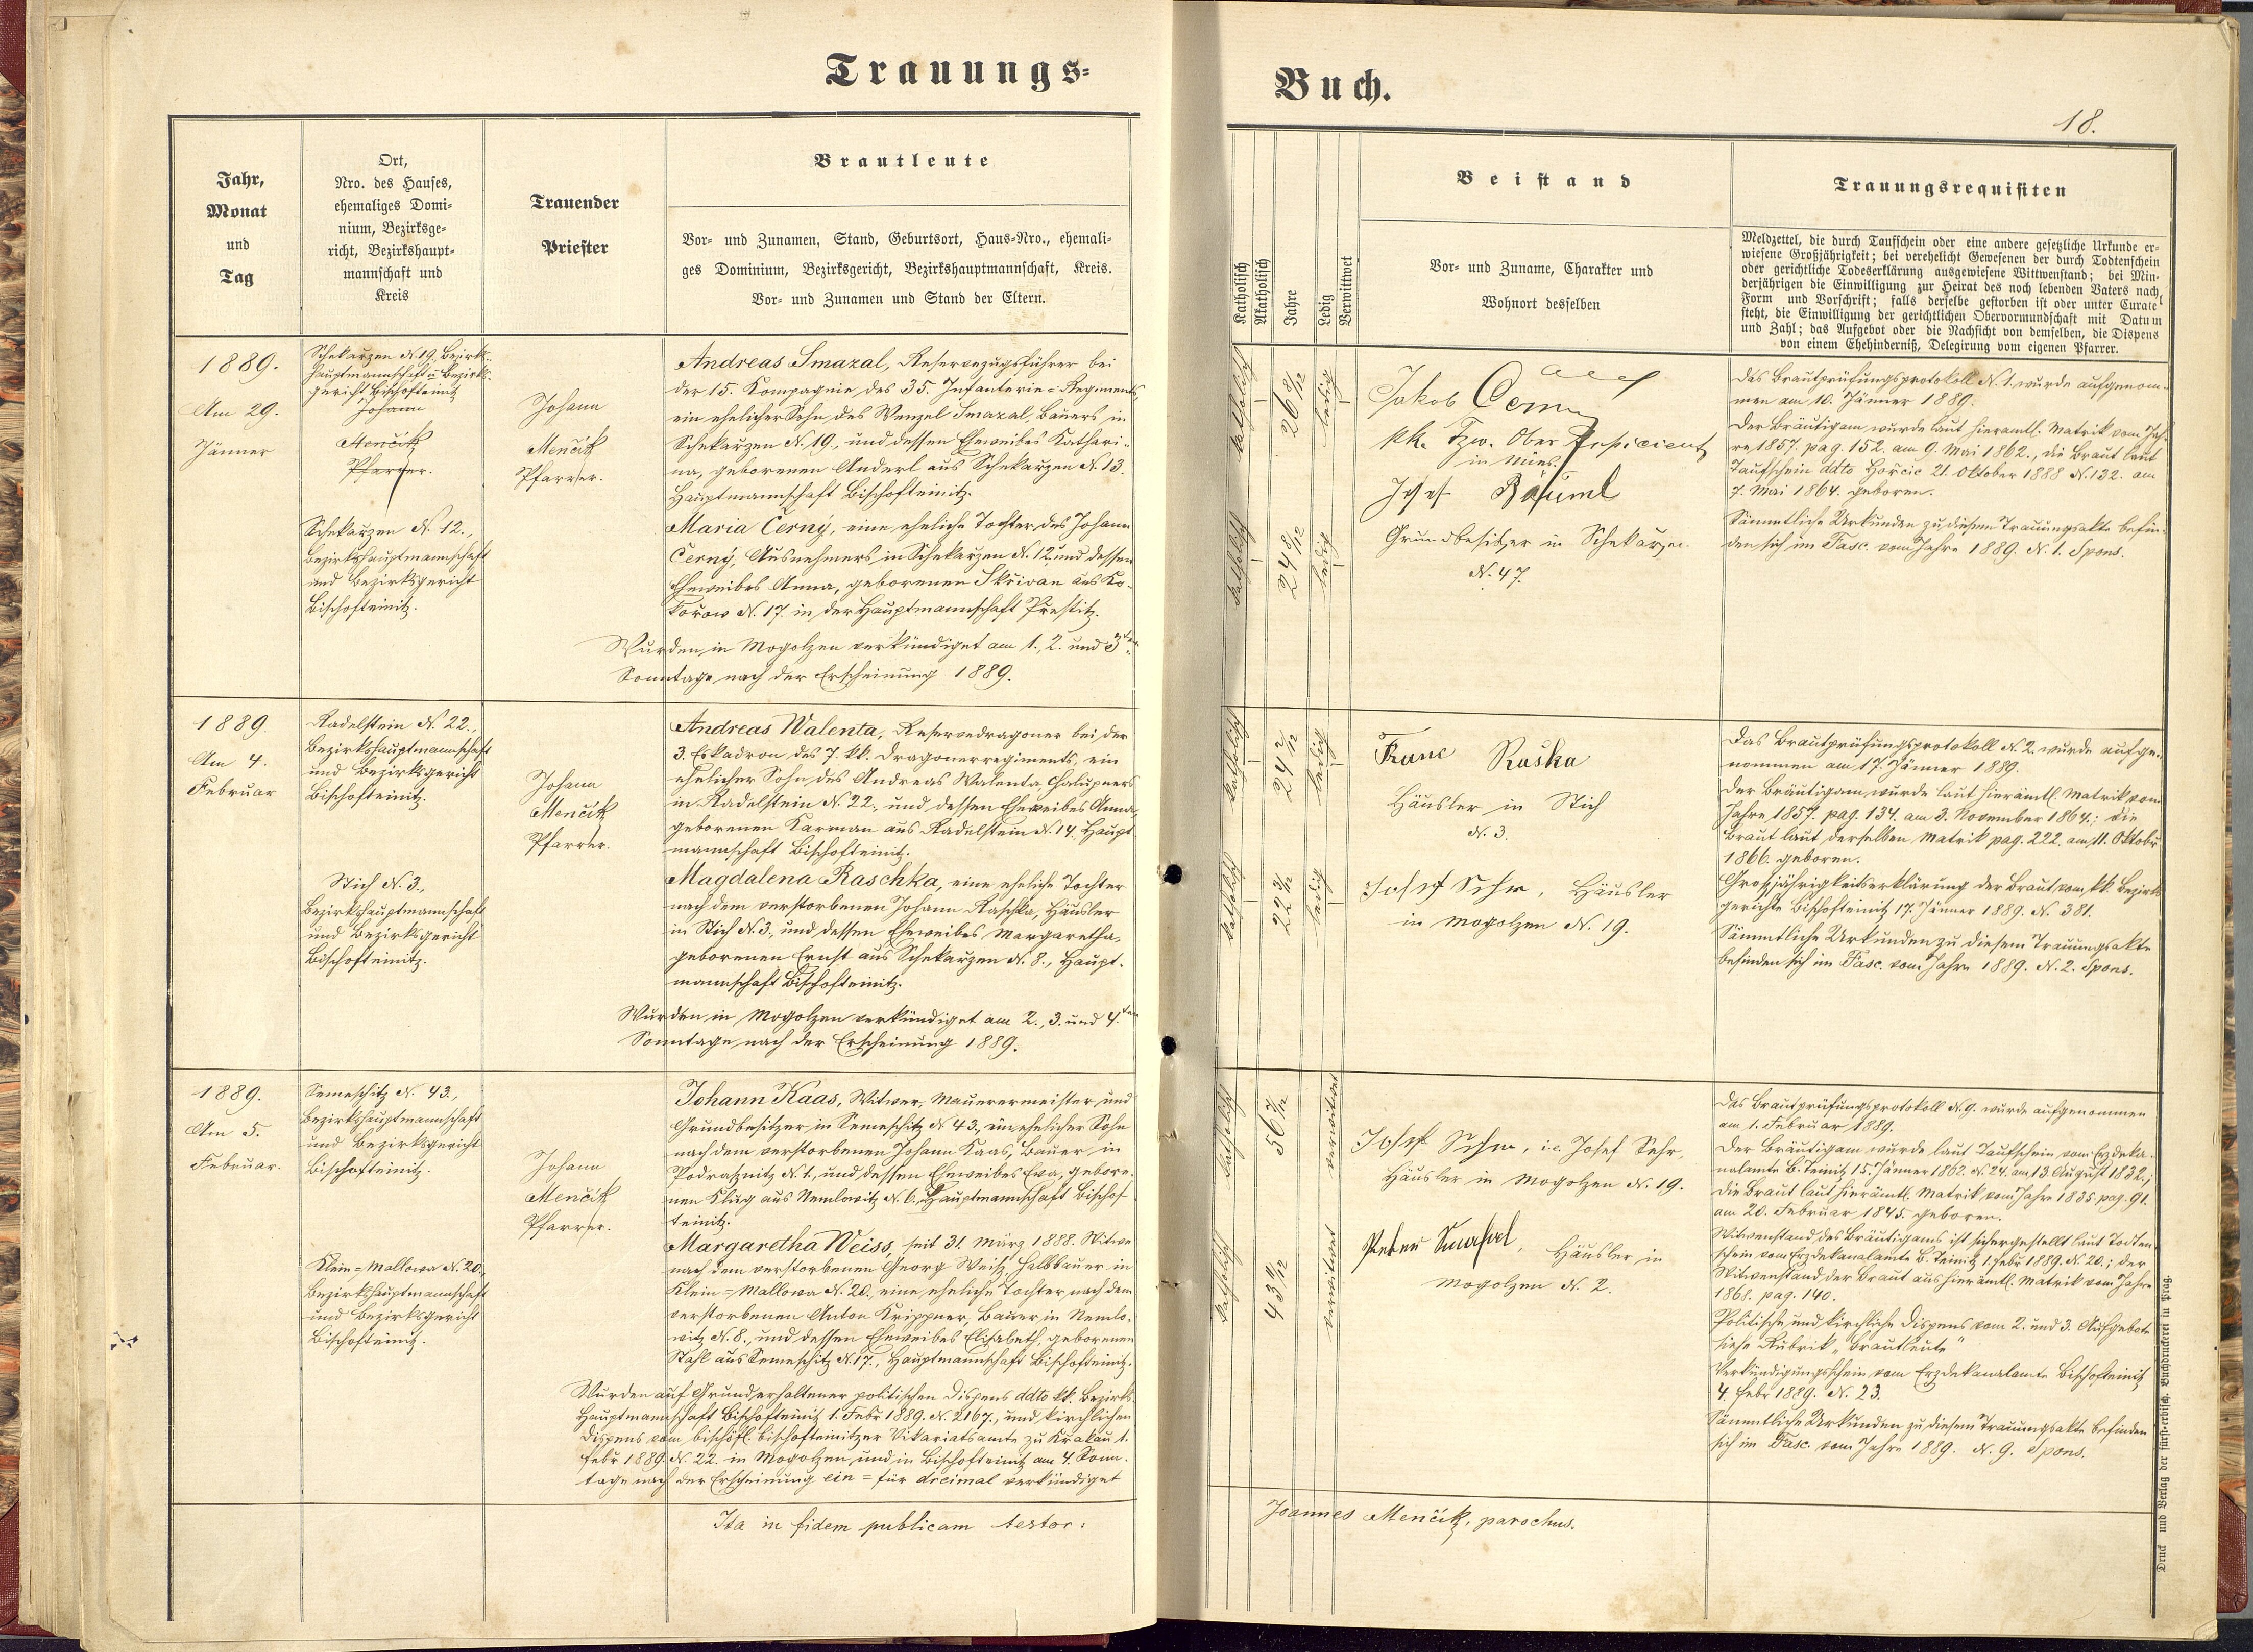 Trauungs-
Buch.
18.
Jahr,
Monat
und
Tag
Ort,
Nro. des Hauses,
ehemaliges Domi-
nium, Bezirksge-
richt, Bezirkshaupt-
mannschaft und
Kreis
Trauender
Priester
Brautleute
Vor- und Zunamen, Stand, Geburtsort, Haus-Nro., ehemali-
ges Dominium, Bezirksgericht, Bezirkshauptmannschaft, Kreis.
Vor- und Zunamen und Stand der Eltern.
Katholisch
Akatholisch
Jahre
Ledig
Verwittwet
Beistand
Vor- und Zuname, Charakter und
Wohnort desselben
Trauungsrequisiten
Meldzettel, die durch Taufschein oder eine andere gesetzliche Urkunde er-
wiesene Großjährigkeit; bei verehelicht Gewesenen der durch Todtenschein
oder gerichtliche Todeserklärung ausgewiesene Wittwenstand; bei Min-
derjährigen die Einwilligung zur Heirat des noch lebenden Vaters nach
Form und Vorschrift; falls derselbe gestorben ist oder unter Curatel
steht, die Einwilligung der gerichtlichen Obervormundschaft mit Datum
und Zahl; das Aufgebot oder die Nachsicht von demselben, die Dispens
von einem Ehehinderniß, Delegirung vom eigenen Pfarrer.
1889.
Am 29.
Jänner
Schekarzen N. 19., Bezirks-
hauptmannschaft u. Bezirks-
gericht Bischofteinitz
Johann
Menčik
Pfarrer.
Schekarzen N. 12.,
Bezirkshauptmannschaft
und Bezirksgericht
Bischofteinitz.
Johann
Menčik
Pfarrer.
Andreas Smazal, Reservezugsführer bei
der 15. Kompagnie des 35. Infanterie-Regiments,
ein ehelicher Sohn des Wenzel Smazal, Bauers in
Schekarzen N. 19., und dessen Eheweibes Kathari-
na, geborenen Anderl aus Schekarzen N. 13.
Hauptmannschaft Bischofteinitz.
Maria Černý, eine eheliche Tochter des Johann
Černý, Ausnehmers in Schekarzen N. 12, und dessen
Eheweibes Anna, geborenen Skřivan aus Ko-
kořow N. 17. in der Hauptmannschaft Prestitz.
Wurden in Mogolzen verkündiget am 1., 2. und 3ten
Sonntage nach der Erscheinung 1889.
katholisch
26 8/12
ledig
katholisch
24 8/12
ledig
Jakob
in
Josef Bäuml
Grundbesitzer in Schekarzen
N. 47.
Das Brautprüfungsprotokoll N. 1. wurde aufgenom-
men am 10. Jänner 1889.
Der Bräutigam wurde laut hieramtl. Matrik vom Jah-
re 1857. pag. 152. am 9. Mai 1862., die Braut laut
Taufschein ddto Hořcic 21. Oktober 1888 N. 132. am
7. Mai 1864. geboren.
Sämmtliche Urkunden zu diesem Trauungsakte befin-
den sich im Fasc. vom Jahre 1889. N. 1. Spons.
1889.
Am 4.
Februar
Radelstein N. 22.,
Bezirkshauptmannschaft
und Bezirksgericht
Bischofteinitz.
Stich N. 3.,
Bezirkshauptmannschaft
und Bezirksgericht
Bischofteinitz.
Johann
Menčik
Pfarrer.
Andreas Walenta, Reservedragoner bei der
3. Eskadron des 7. kk. Dragonerregiments, ein
ehelicher Sohn des Andreas Walenta, Chalupners
in Radelstein N. 22., und dessen Eheweibes Anna,
geborenen Karman aus Radelstein N. 14. Haupt-
mannschaft Bischofteinitz.
Magdalena Raschka, eine eheliche Tochter
nach dem verstorbenen Johann Raschka, Häusler
in Stich N. 3., und dessen Eheweibes Margaretha,
geborenen Ernst aus Schekarzen N. 8., Haupt-
mannschaft Bischofteinitz.
Wurden in Mogolzen verkündiget am 2., 3. und 4.ten
Sonntage nach der Erscheinung 1889.
katholisch
24 2/12
ledig
katholisch
22 3/12
ledig
Franc Raška
Häusler in Stich
N. 3.
Josef Sehr, Häusler
in Mogolzen N. 19.
Das Brautprüfungsprotokoll N. 2. wurde aufge-
nommen am 17. Jänner 1889.
Der Bräutigam wurde laut hierämtl. Matrik vom
Jahre 1857. pag. 134. am 3. November 1864.; die
Braut laut derselben Matrik pag. 222. am 11. Oktober
1866. geboren.
Großjährigkeitserklärung der Braut vom kk. Bezirks-
gerichte Bischofteinitz 17. Jänner 1889. N. 381.
Sämmtliche Urkunden zu diesem Trauungsakte
befinden sich im Fasc. vom Jahre 1889. N. 2. Spons.
1889.
Am 5.
Februar.
Semeschitz N. 43.,
Bezirkshauptmannschaft
und Bezirksgericht
Bischofteinitz.
Klein-Mallowa N. 20.,
Bezirkshauptmannschaft
und Bezirksgericht
Bischofteinitz.
Johann
Menčik
Pfarrer.
Johann Kaas, Witwer, Mauerermeister und
Grundbesitzer in Semeschitz N. 43., ein ehelicher Sohn
nach dem verstorbenen Johann Kaas, Bauer in
Podrasnitz N. 1., und dessen Eheweibes Eva, gebore-
nen Klug aus Nemlowitz N. 6. Hauptmannschaft Bischof-
teinitz.
Margaretha Weiss, seit 31. März 1888. Witwe
nach dem verstorbenen Georg Weiss, Halbbauer in
Klein-Mallowa N. 20., eine eheliche Tochter nach dem
verstorbenen Anton Krippner, Bauer in Nemlo-
witz N. 8., und dessen Eheweibes Elisabeth, geborenen
Stahl aus Semeschitz N. 17., Hauptmannschaft Bischofteinitz.
Wurden auf Grund erhaltener politischen Dispens ddto kk. Bezirks-
Hauptmannschaft Bischofteinitz 1. Febr 1889. N. 2167., und kirchlichen
Dispens vom bischöfl. bischofteinitzer Vikariatsamte zu Krakau 1.
Febr 1889. N. 22. in Mogolzen und in Bischofteinitz am 4. Sonn-
tage nach der Erscheinung ein- für dreimal verkündiget
katholisch
verwitwet
katholisch
verwitwet
Josef Sehr, i.e. Josef Sehr,
Häusler in Mogolzen N. 19.
Häusler in
Mogolzen N. 2.
Das Brautprüfungsprotokoll N. 9. wurde aufgenommen
am 1. Februar 1889.
Der Bräutigam wurde laut Taufschein vom Erzdeka-
nalamte B. Teinitz 15. Jänner 1862. N. 24. am 13. August 1832.;
die Braut laut hierämtl. Matrik vom Jahre 1835. pag. 91.
am 20. Februar 1845. geboren.
Witwenstand des Bräutigams ist sichergestellt laut Todten-
schein vom Erzdekanalamte B. Teinitz 1. Febr 1889. N. 20.; der
Witwenstand der Braut aus hierämtl. Matrik vom Jahre
1868. pag. 140.
Politische und kirchliche Dispens vom 2. und 3. Aufgebote
siehe Rubrik „Brautleute“
Verkündigungsschein vom Erzdekanalamte Bischofteinitz
4 Febr 1889. N. 23.
Sämmtliche Urkunden zu diesem Trauungsakte befinden
sich im Fasc. vom Jahre 1889. N. 9. Spons.
Ita in fidem publicam testor:
Joannes Menčik, parochus.
Druck und Verlag der fürst-erzbisch. Buchdruckerei in Prag.